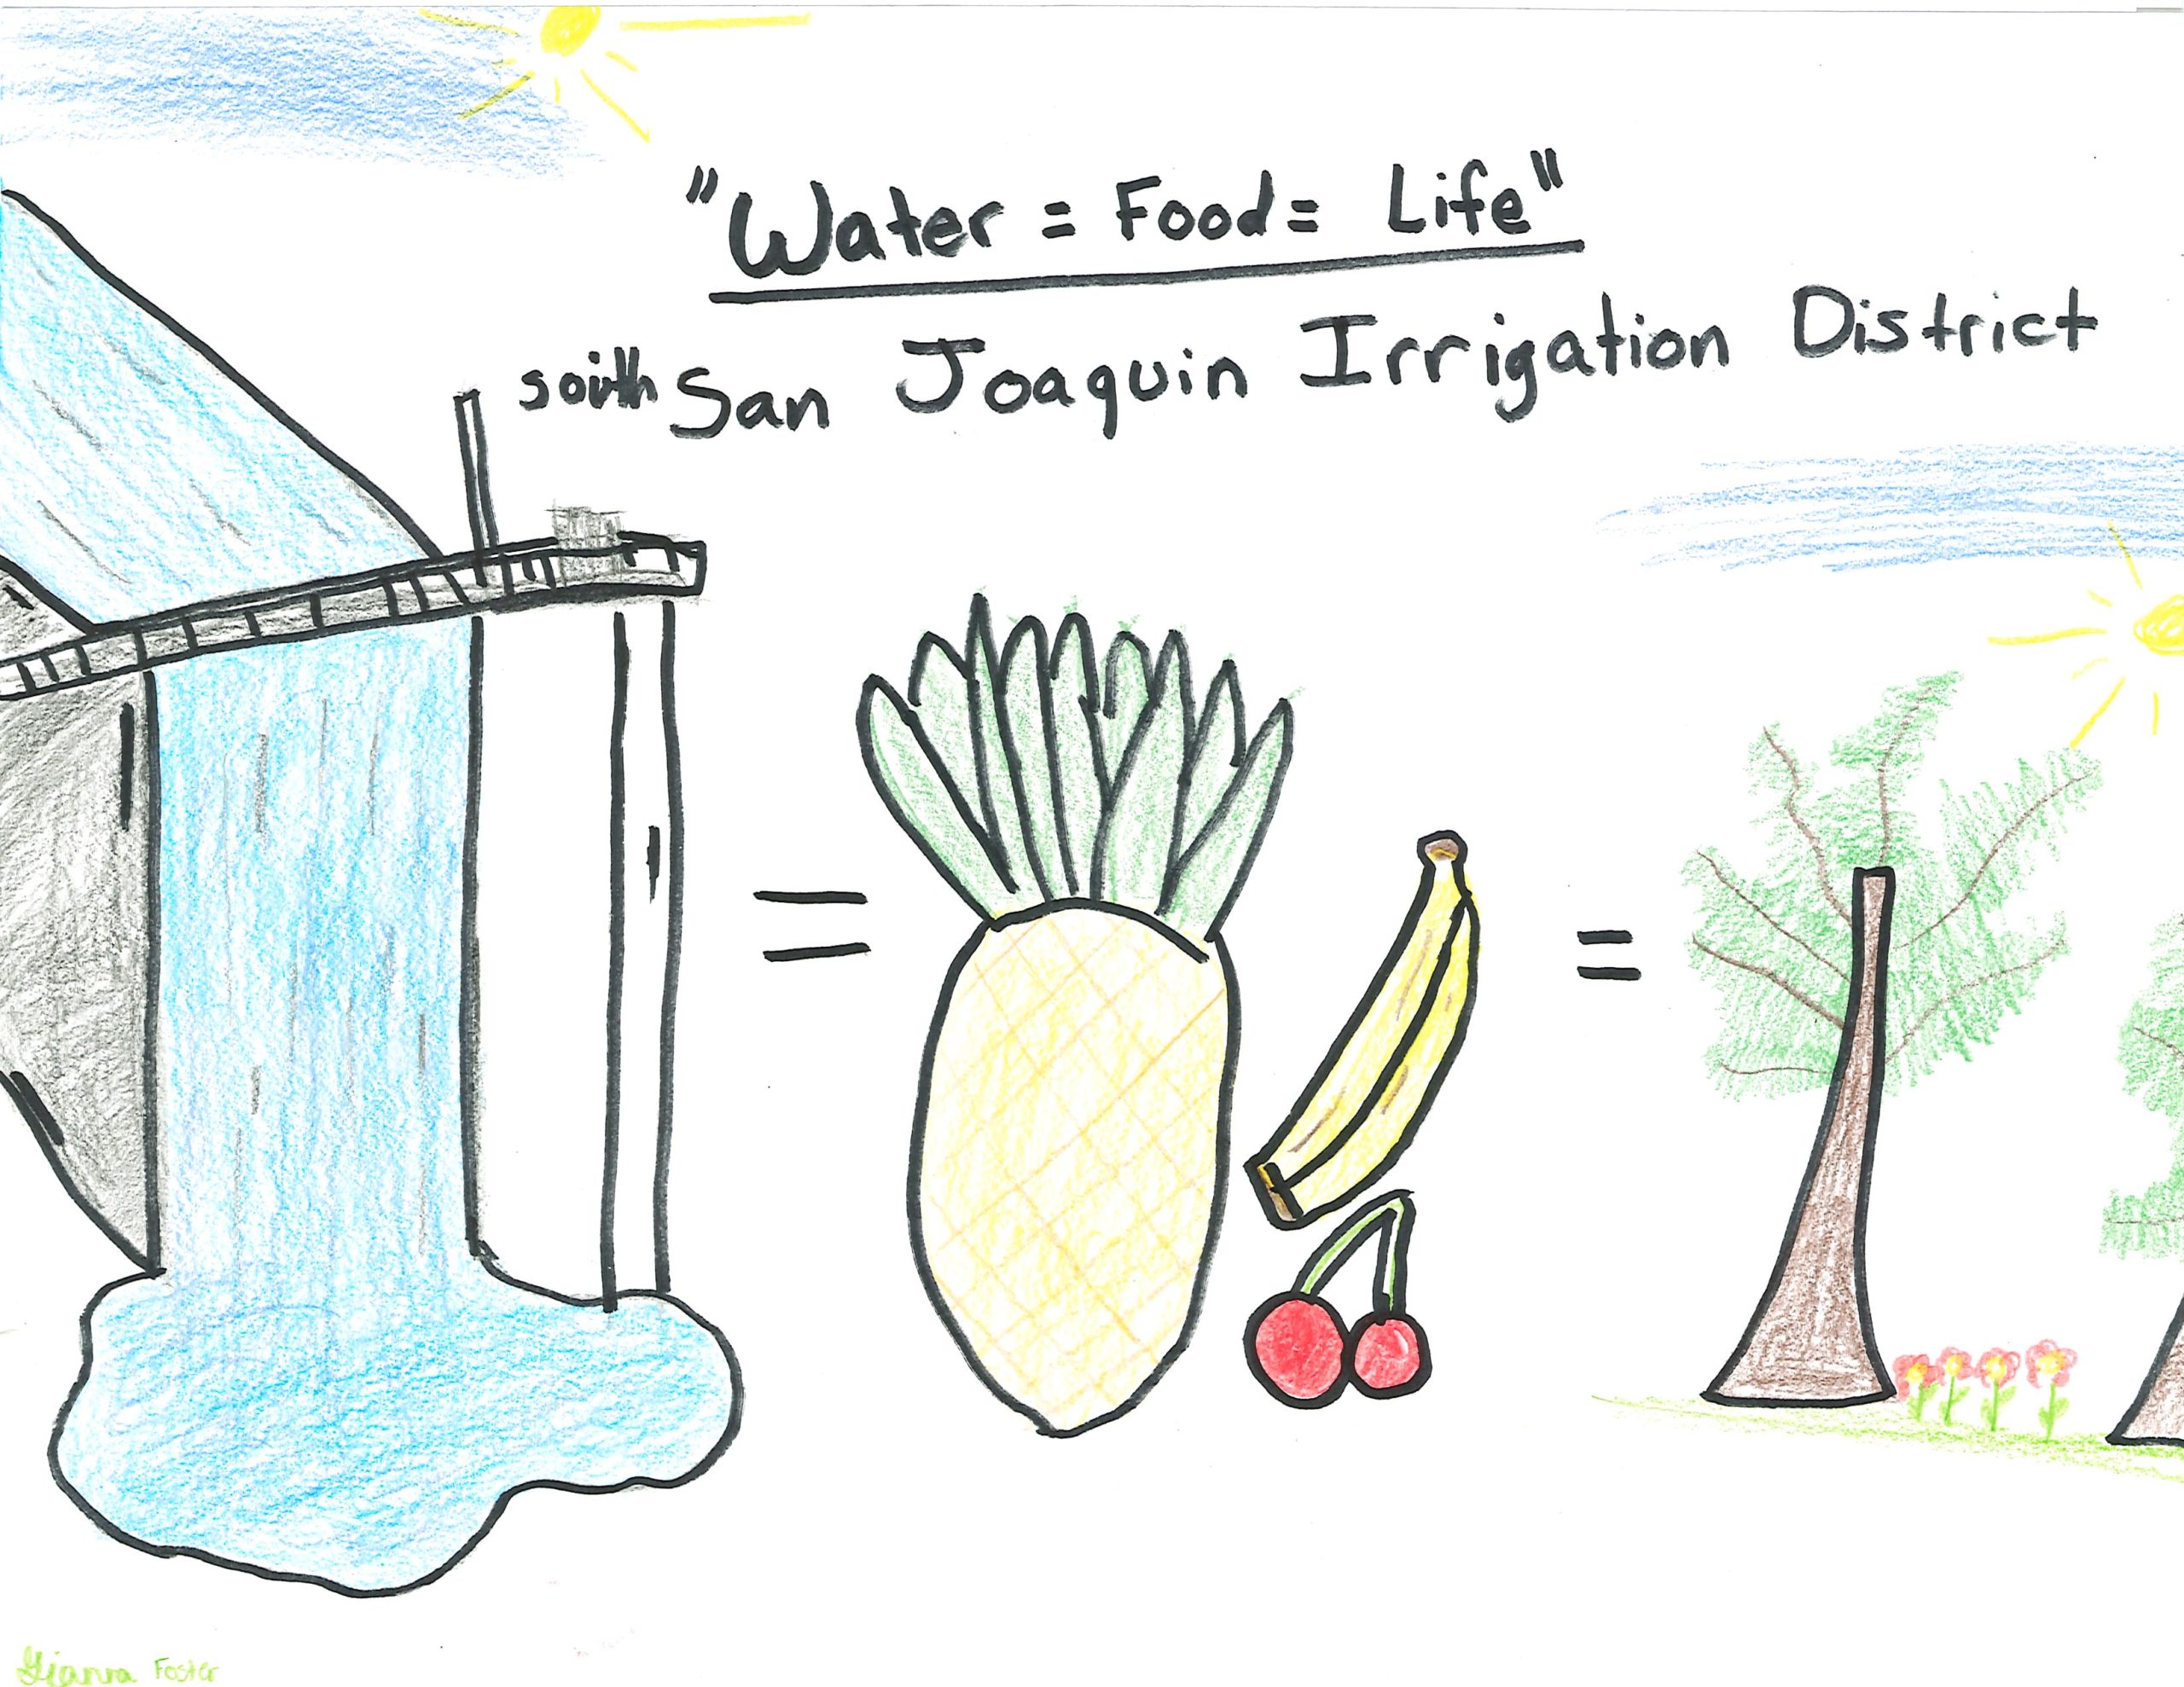 "Water = Food = Life"
south San Joaquin Irrigation District
= =
Gianna Foster